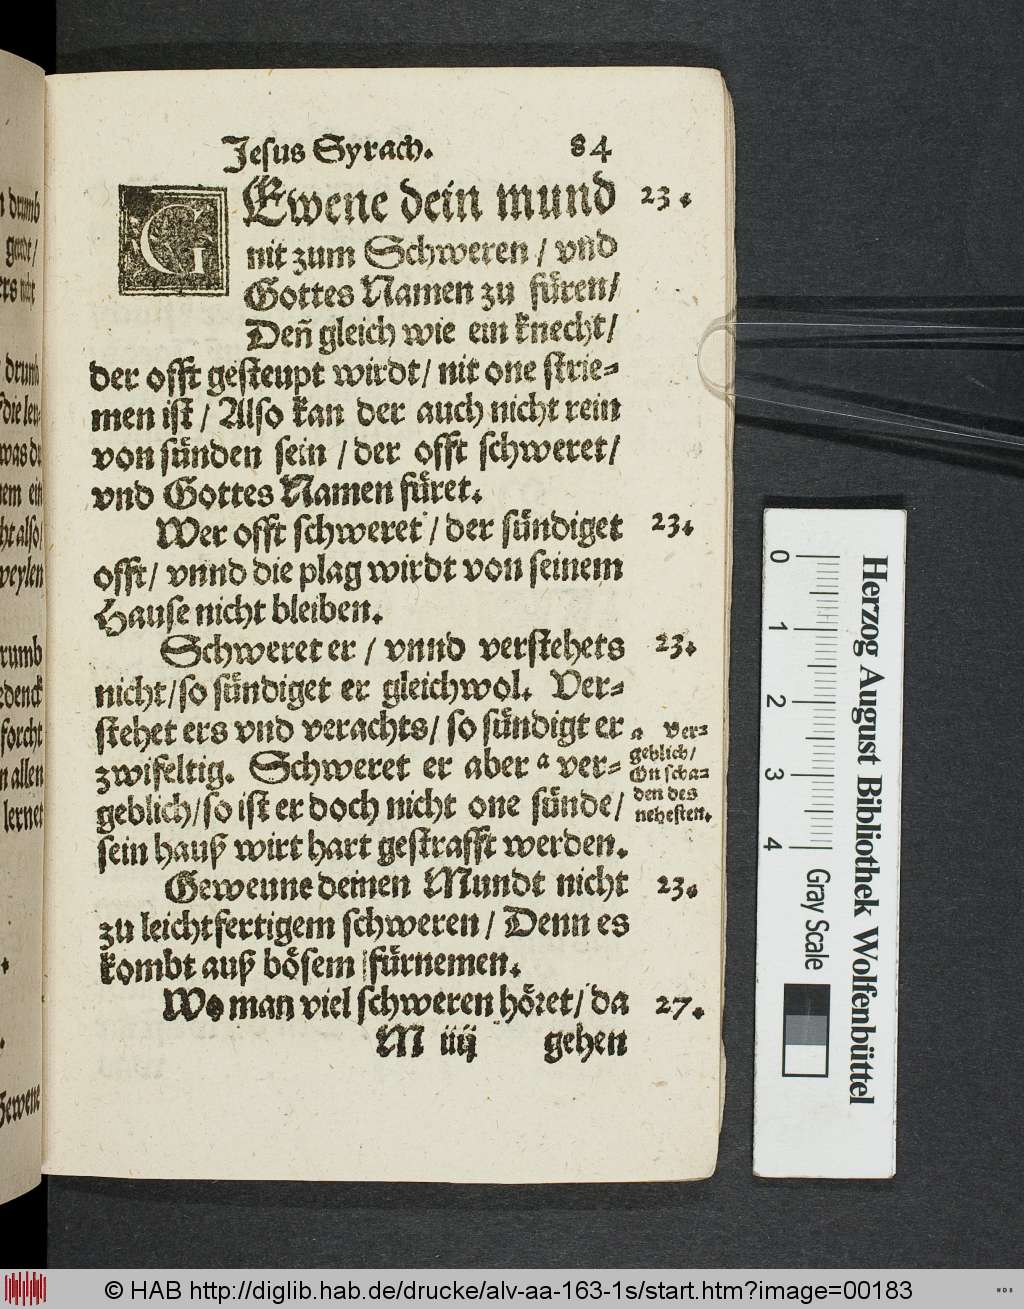 Jesus Syrach. 84
GEwene dein mund 23.
nit zum Schweren / vnd
Gottes Namen zu füren/
Deñ gleich wie ein knecht/
der offt gesteupt wirdt/ nit one strie-
men ist / Also kan der auch nicht rein
von sünden sein / der offt schweret/
vnd Gottes Namen füret.
Wer offt schweret / der sündiget 23.
offt/ vnnd die plag wirdt von seinem
Hause nicht bleiben.
Schweret er / vnnd verstehets 23.
nicht/so sündiget er gleichwol. Ver-
stehet ers vnd verachts/ so sündigt er
zwifeltig. Schweret er aber a ver-
geblich/so ist er doch nicht one sünde/
sein hauß wirt hart gestrafft werden.
a Ver-
geblich/
On scha-
den des
nehesten.
Geweune deinen Mundt nicht 23.
zu leichtfertigem schweren / Denn es
kombt auß bösem fürnemen.
Wo man viel schweren höret/ da 27.
M iiij gehen
n drumb
drumb
was du
ht also/
rumb
edenck
forcht
n allen
lernet
Gewene
0 1 2 3 4
Gray Scale
Herzog August Bibliothek Wolfenbüttel
© HAB http://diglib.hab.de/drucke/alv-aa-163-1s/start.htm?image=00183